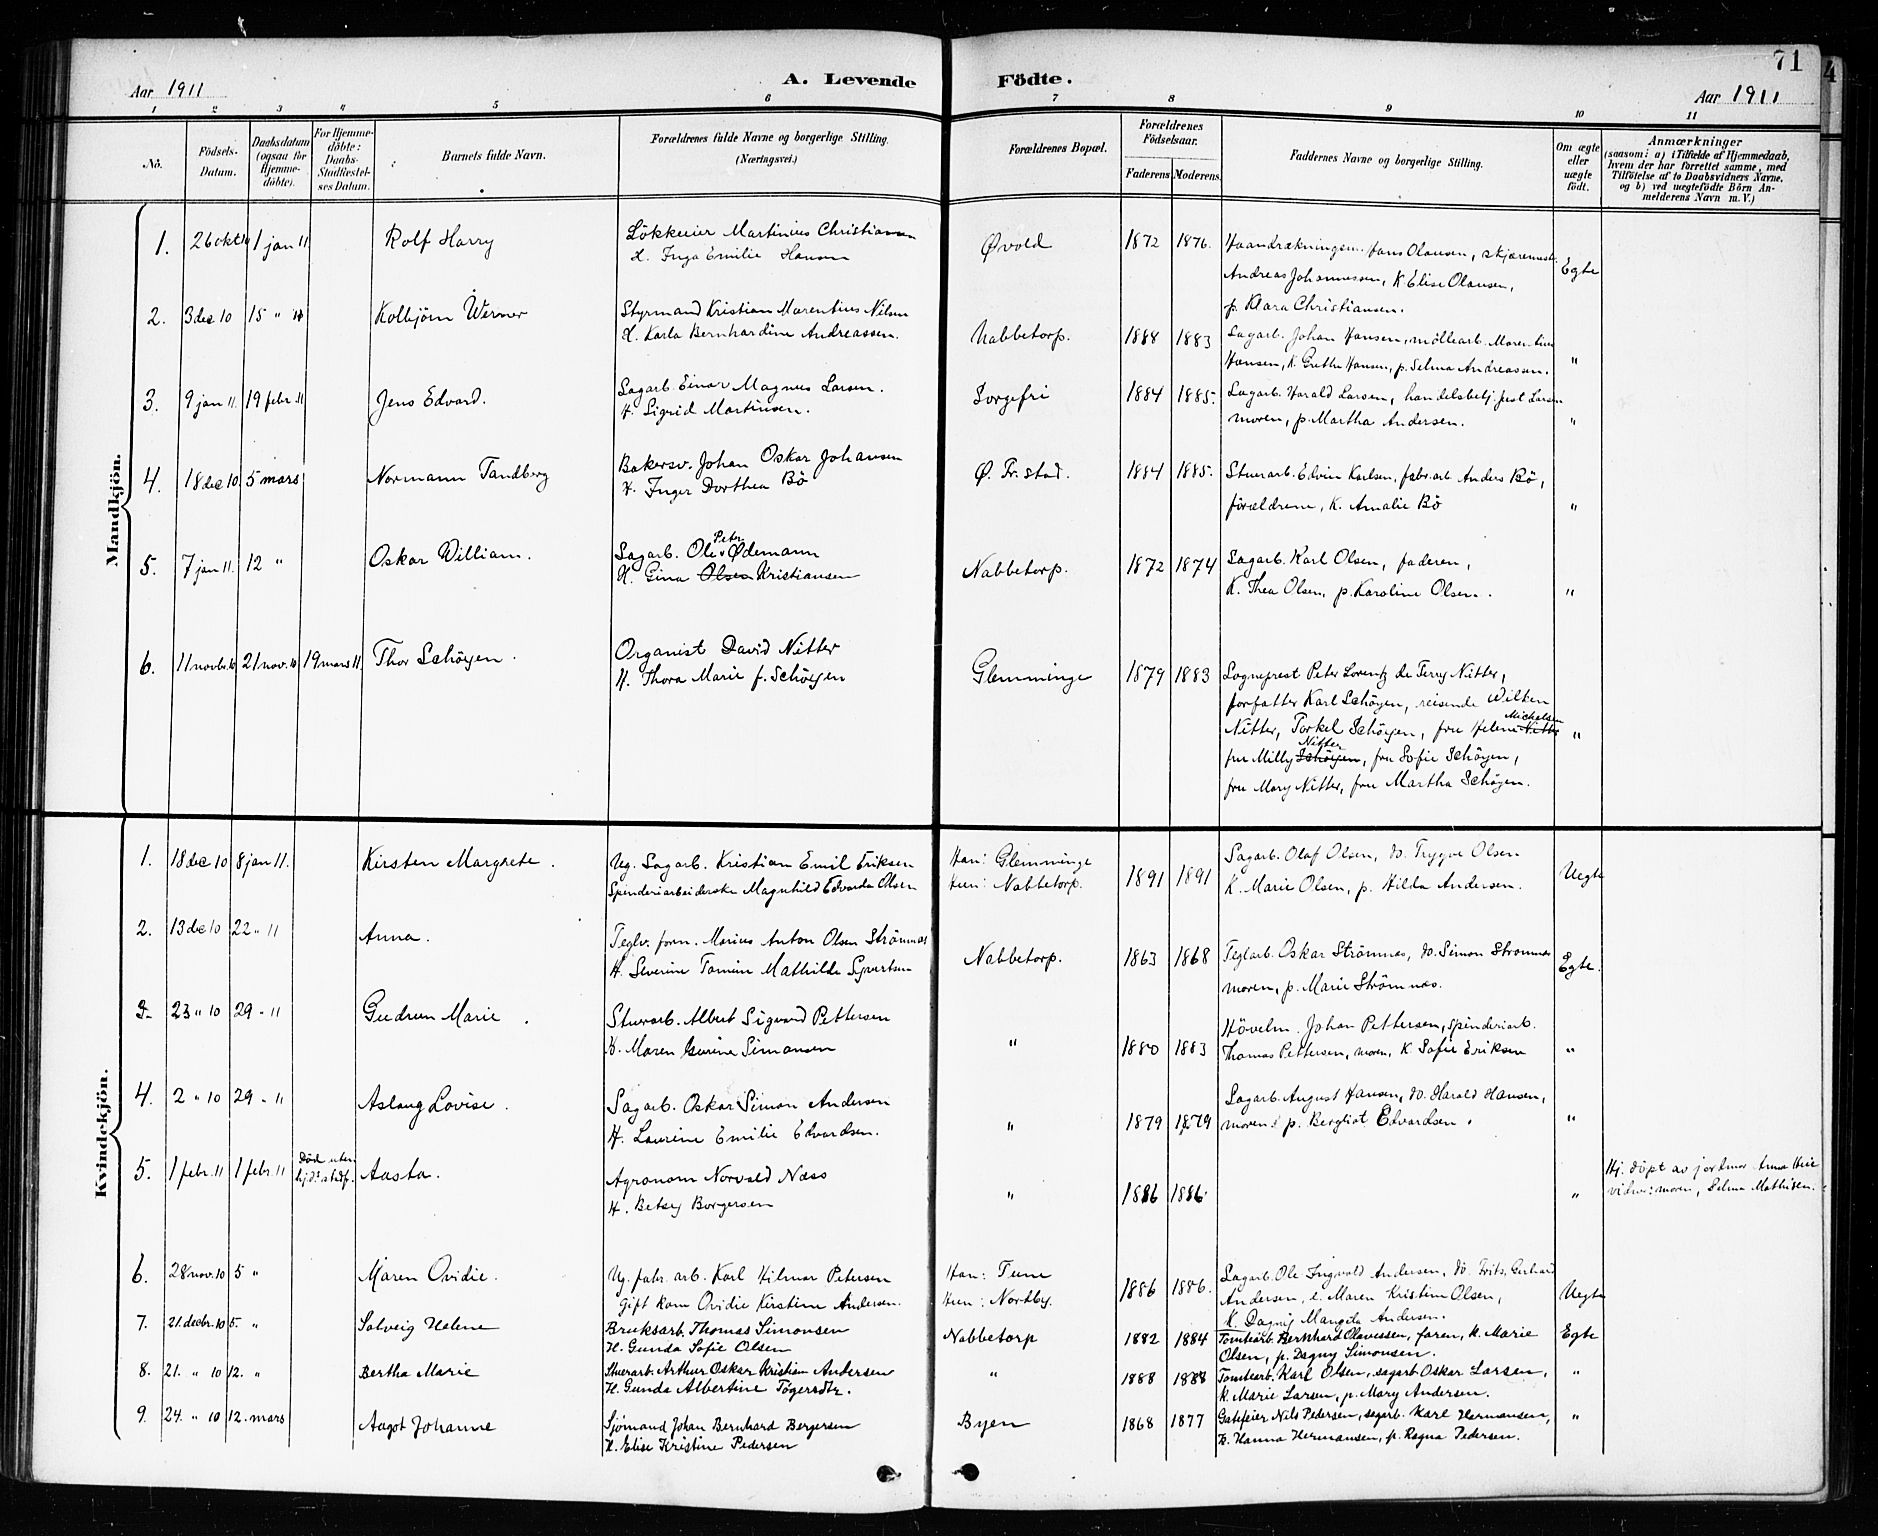 71
4
A. Levende Födte.
Aar 1911
Aar 1911
1 2 3 4 5 6 7 8 9 10 11
No.
Födsels-Datum.
Daabsdatum (ogsaa for Hjemme-döbte).
For Hjemme-döbte: Daabs-Stadfæstel-ses Datum.
Barnets fulde Navn.
Forældrenes fulde Navne og borgerlige Stilling. (Næringsvei.)
Forældrenes Bopæl.
Forældrenes Födselsaar.
Faderens Moderens.
Faddernes Navne og borgerlige Stilling.
Om ægte eller uægte födt.
Anmærkninger
(saasom: a) i Tilfælde af Hjemmedaab,
hvem der har forrettet samme, med
Tilföielse af to Daabsvidners Navne.
og b) ved uægtefödte Börn An-
melderens Navn m. V.)
Mandkjön.
1. 26 okt 10 1 jan 11. Rolf Harry
Lökkeeier Martinius Christiansen
H. Inga Emilie Hansen
Øvold 1872 1876.
Haandrækningsm. Jans Olausen, skjæremest.
Andreas Johannessen, K. Elise Olausen,
p. Klara Christiansen.
Egte
2. 3 dec 10 15 " 11 Kolbjörn Werner
Styrmand Kristian Marentius Nilsen
H. Karla Bernhardine Andreassen.
Nabbetorp. 1884 1883
Sagarb. Johan Hansen, möllearb. Maren tius
Hansen, K. Grethe Hansen, p. Selma Andreassen.
"
3. 9 jan 11. 19 febr 11 Jens Edvard.
Sagarb. Einar Magnus Larsen.
H. Sigrid Martinsen.
Sorgefri 1884 1885.
Sagarb. Harald Larsen, handelsbetj. Just Larsen
moren, p. Martha Andersen.
"
4. 18 dec 10 5 mars Normann Tandberg
Bakersv. Johan Oskar Johansen
H. Inger Dorthea Bö
Ø. Fr.stad. 1884 1885.
Stuerarb. Edvin Karlsen, fabr.arb. Anders Bö,
forældrene, K. Amalie Bö
"
5. 7 jan 11. 12 " Oskar William.
Sagarb. Ole Peter Ødemann
H. Gina Olsen Kristiansen
Nabbetorp. 1872 1874
Sagarb. Karl Olsen, faderen,
K. Thea Olsen, p. Karoline Olsen.
"
6. 11 novbr. 10 21 nov. 10 19 mars 11. Thor Schöyen.
Organist David Nitter
H. Thora Marie f. Schöyen
Glemminge 1879 1883
Sogneprest Peter Lorentz de Ferry Nitter,
forfatter Karl Schöyen, reisende Wilken
Nitter, Torkel Schöyen, fru Helene Nitter Michelsen
fru Milly Schöyen Nitter, fru Sofie Schöyen,
fru Mary Nitter, fru Martha Schöyen.
"
Kvindekjön.
1. 18 dec 10 8 jan 11. Kirsten Margrete.
Ug. Sagarb. Kristian Emil Eriksen
Spinderiarbeiderske Magnhild Edvarda Olsen
Han: Glemminge
Hun: Nabbetorp. 1891 1891
Sagarb. Olaf Olsen, do. Trygve Olsen
K. Marie Olsen, p. Hilda Andersen.
Uegte
2. 13 dec 10 22 " 11 Anna.
Teglv. form. Marius Anton Olsen Strömnæs
H. Severine Tomine Mathilde Syvertsen
Nabbetorp. 1863 1868
Teglarb. Oskar Strömnæs, do. Simon Strömnæs
moren, p. Marie Strömnæs.
Egte.
3. 23 " 10 29 " 11 Gudrun Marie.
Stuerarb. Albert Sigvard Pettersen
H. Maren Gurine Simonsen
" 1880 1883
Hövelm. Johan Pettersen, Spinderiarb.
Thomas Pettersen, moren, K. Sofie Eriksen
"
4. 2 " 10 29 " 11 Aslaug Lovise.
Sagarb. Oskar Simon Andersen
H. Laurine Emilie Edvardsen.
" 1879 1879
Sagarb. August Hansen, do. Harald Hansen,
moren, p. Bergliot Edvardsen.
"
5. 1 febr. 11 1 febr. 11 Död uten hj.d. stadf. Aasta.
Agronom Norvald Næss
H. Betsy Borgersen
" 1886 1886.
"
Hj. döpt av jordmor Anna Hvie
vidner: moren, Selma Mathisen.
6. 28 nov. 10 5 " Maren Ovidie.
Ug. fabr. arb. Karl Hilmar Petersen
Gift kom Ovidie Kirstine Andersen.
Han: Tune
Hun: Nortby. 1886 1886.
Sagarb. Ole Ingvald Andersen, do. Frits Gerhard
Andersen, e. Maren Kristine Olsen,
K. Dagny Margita Andersen.
Uegte
7. 21. decbr. 10 5. " Solveig Helene
Bruksarb. Thomas Simonsen
H. Gunda Sofie Olsen
Nabbetorp 1882 1884
Tomtearb. Bernhard Olavessen, faren, k. Marie
Olsen, p. Dagny Simonsen.
Egte
8. 21. " 10 12. " Bertha Marie
Stuerarb. Arthur Oskar Kristian Andersen
H. Gunda Albertine Tögersdtr.
" 1888 1888
Tomtearb. Karl Olsen, sagarb. Oskar Larsen,
k. Marie Larsen, p. Mary Andersen.
"
9. 24. " 10 12. mars Aagot Johanne
Sjömand Johan Bernhard Bergersen
H. Elise Kristine Pedersen
Byen 1868 1877
Gatefeier Nils Pedersen, sagarb. Karl Hermansen,
k. Hanna Hermansen, p. Ragna Pedersen.
"